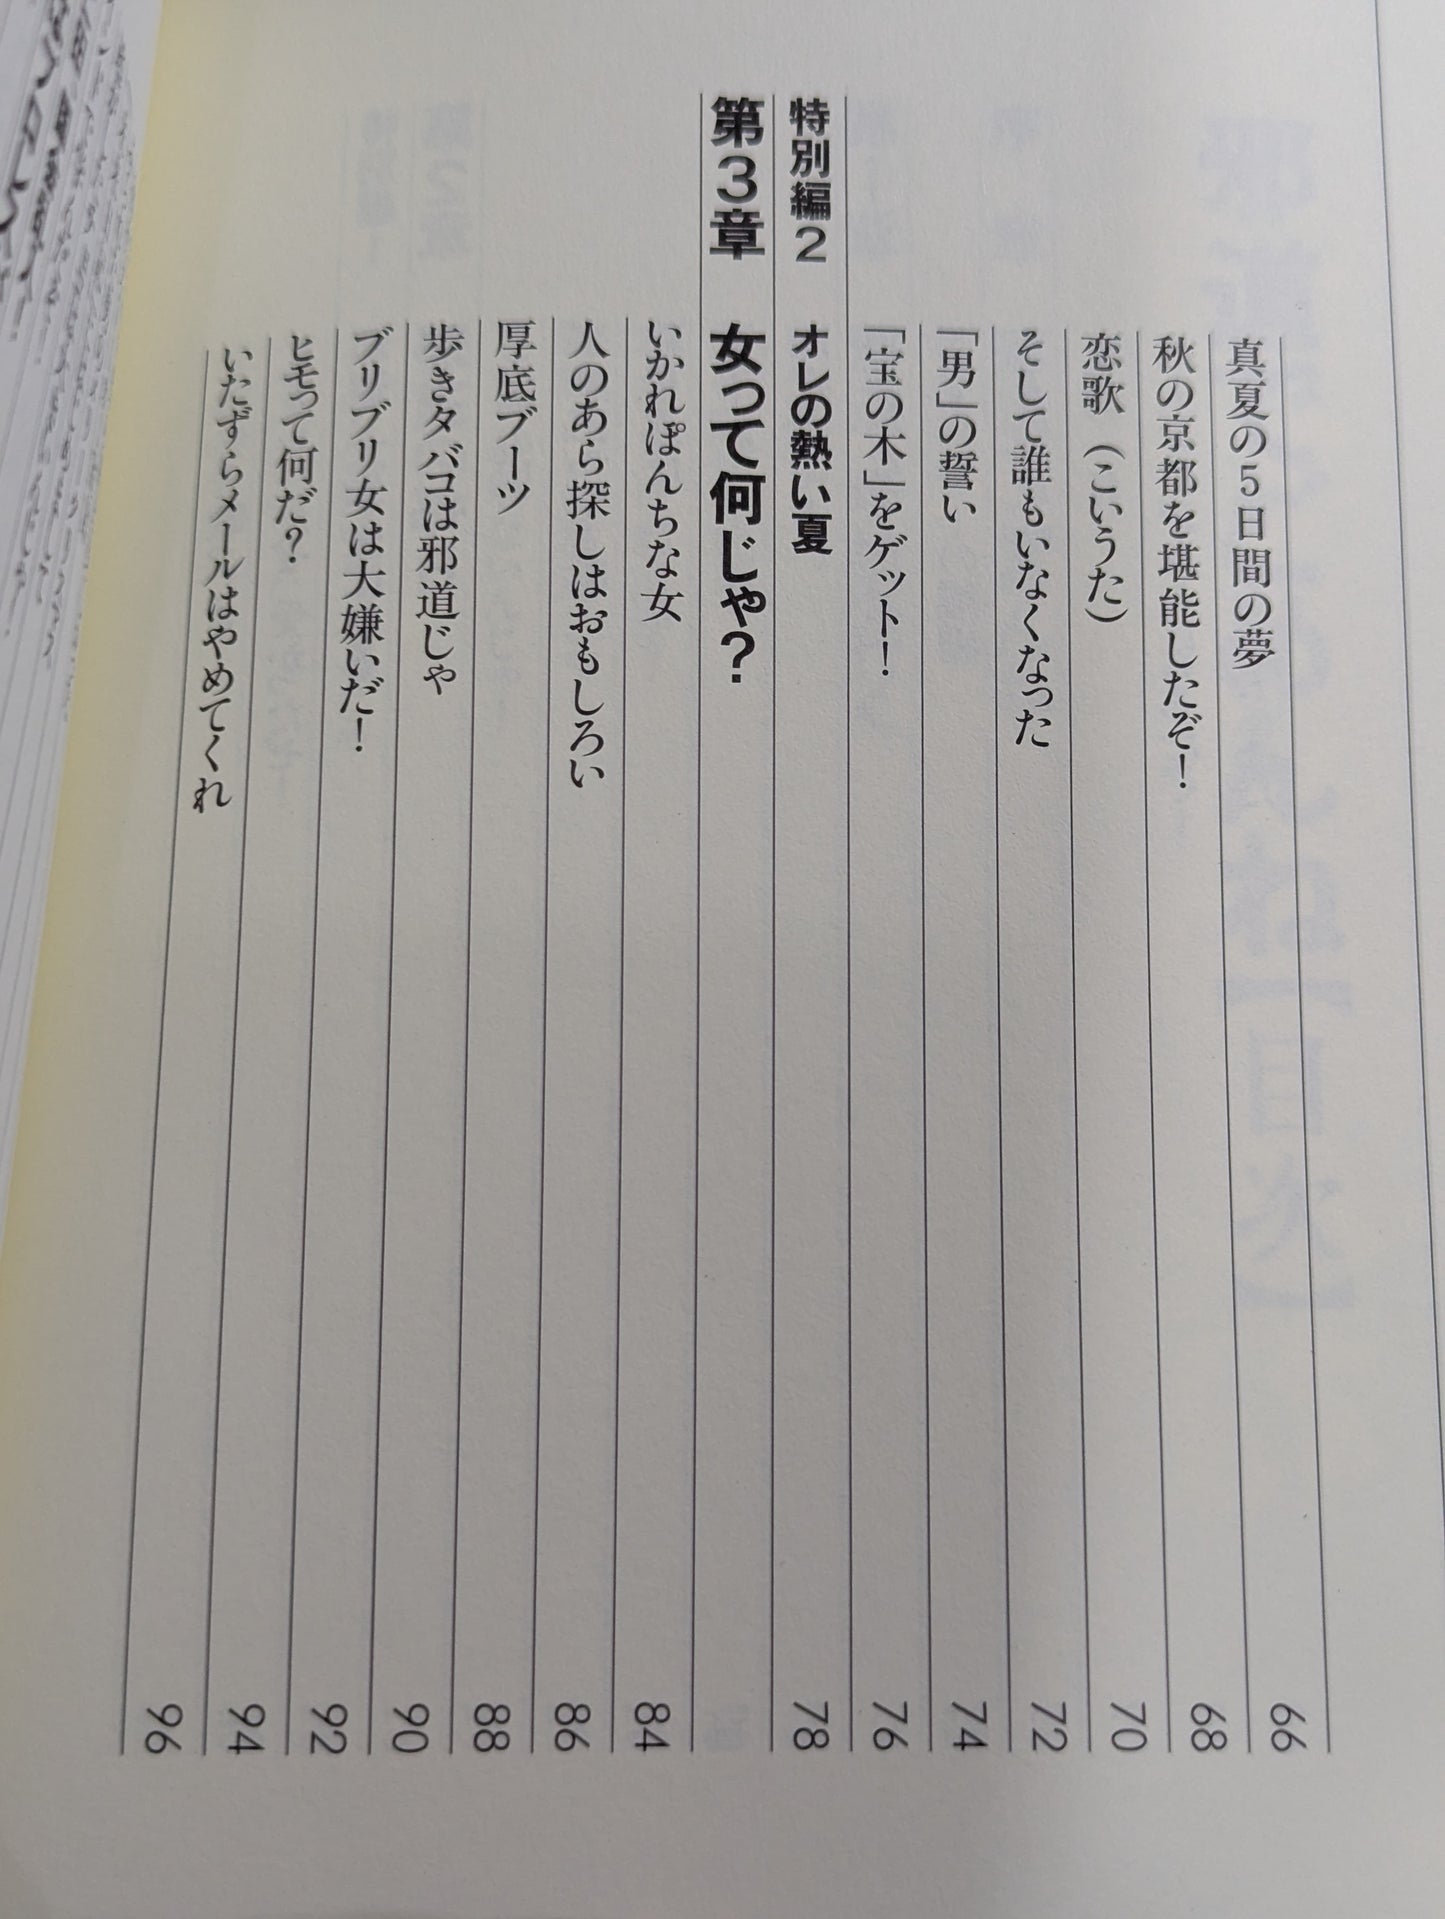 真夏の5日間の夢 66
秋の京都を堪能したぞ！ 68
恋歌（こいうた） 70
そして誰もいなくなった 72
「男」の誓い 74
「宝の木」をゲット！ 76
特別編2 オレの熱い夏 78
第3章 女って何じゃ？
いかれぽんちな女 84
人のあら探しはおもしろい 86
厚底ブーツ 88
歩きタバコは邪道じゃ 90
ブリブリ女は大嫌いだ！ 92
ヒモって何だ？ 94
いたずらメールはやめてくれ 96